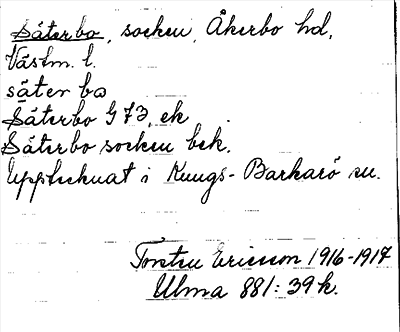 Säterbo, socken, Åkerbo hd,
Västm. l.
säter bo
Säterbo 973, ek
Säterbo socken bek.
Upptecknat i Kungs-Barkarö sn.
Torsten Ericsson 1916-1917
Ulma 881:39 k.